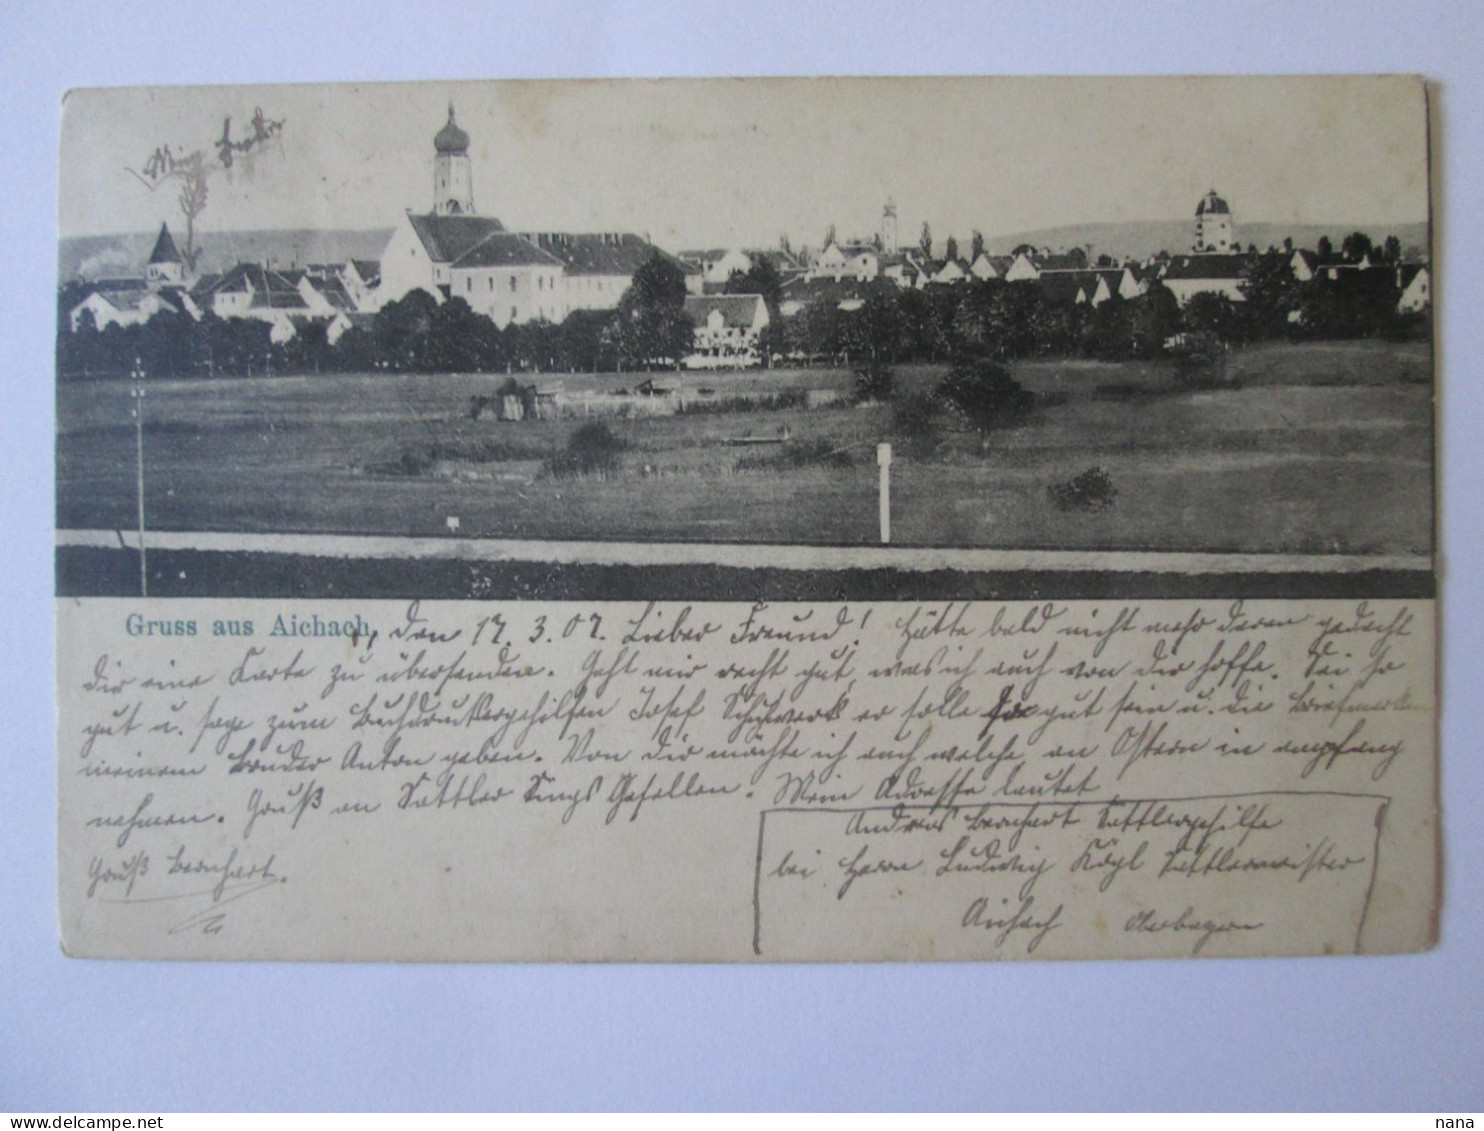 Gruss aus Aichach, den 17. 3. 07. Lieber Freund! Hätte bald nicht mehr daran gedacht
dir eine Karte zu übersenden. Geht mir recht gut, was ich auch von dir hoffe. Sei so
gut u. sage zum Buchdruckergehilfen Josef Schuhwerk er solle so gut sein u. die Briefmarken
meinem Bruder Anton geben. Von dir möchte ich auch welche, an Ostern in empfang
nehmen. Gruß an Sattler Sings Gesellen. Mein Adresse lautet
Andreas Bernhart Sattlergehilfe
bei Herrn Ludwig Kögl Sattlermeister
Aichach Oberbayern
Gruß Bernhart.
nana